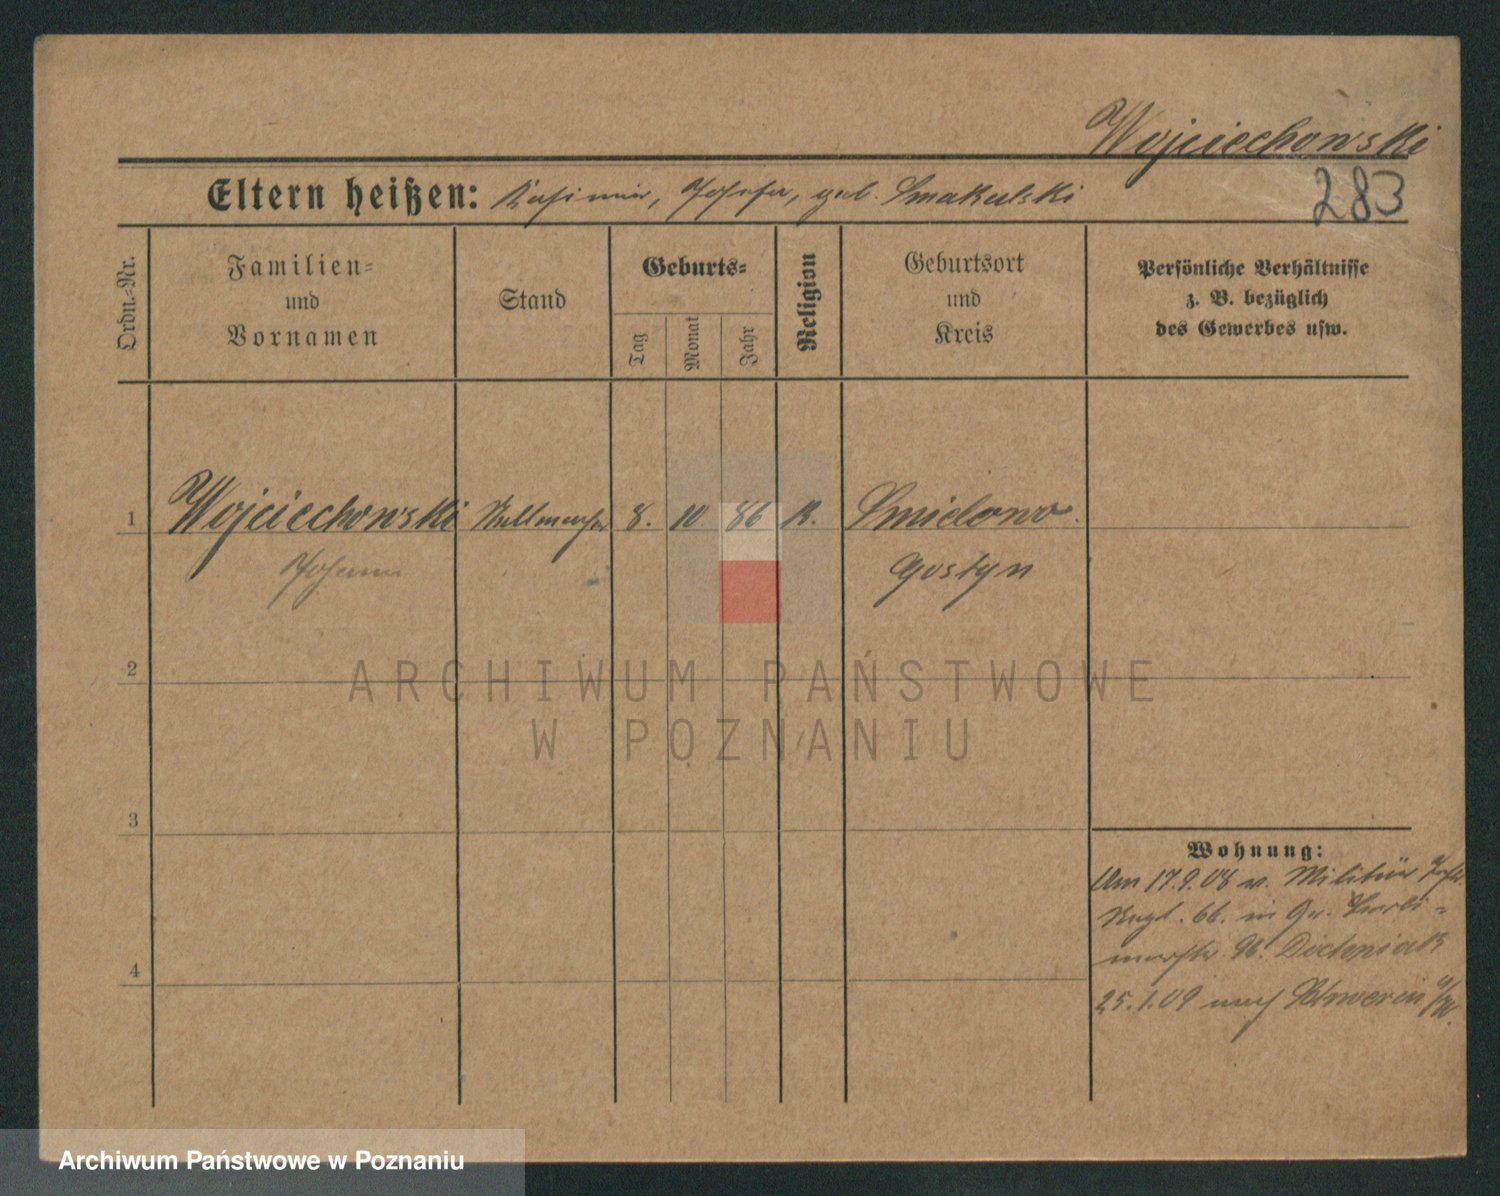 Wojciechowski
283
Eltern heißen: Kasimir, Josefa, geb. Smakulski
Ordn.-Nr.
Familien-
und
Vornamen
Stand
Geburts-
Tag
Monat
Jahr
Religion
Geburtsort
und
Kreis
Persönliche Verhältnisse
z. B. bezüglich
des Gewerbes usw.
1 Wojciechowski Stellmacher 8. 10 86 K. Smielowo
Johann Gostyn
2
ARCHIWUM PAŃSTWOWE
W POZNANIU
3
Wohnung:
Am 17.9.08 v. Militär
Regt. 66. in
25.1.09 nach Schwerin a/W.
4
Archiwum Państwowe w Poznaniu